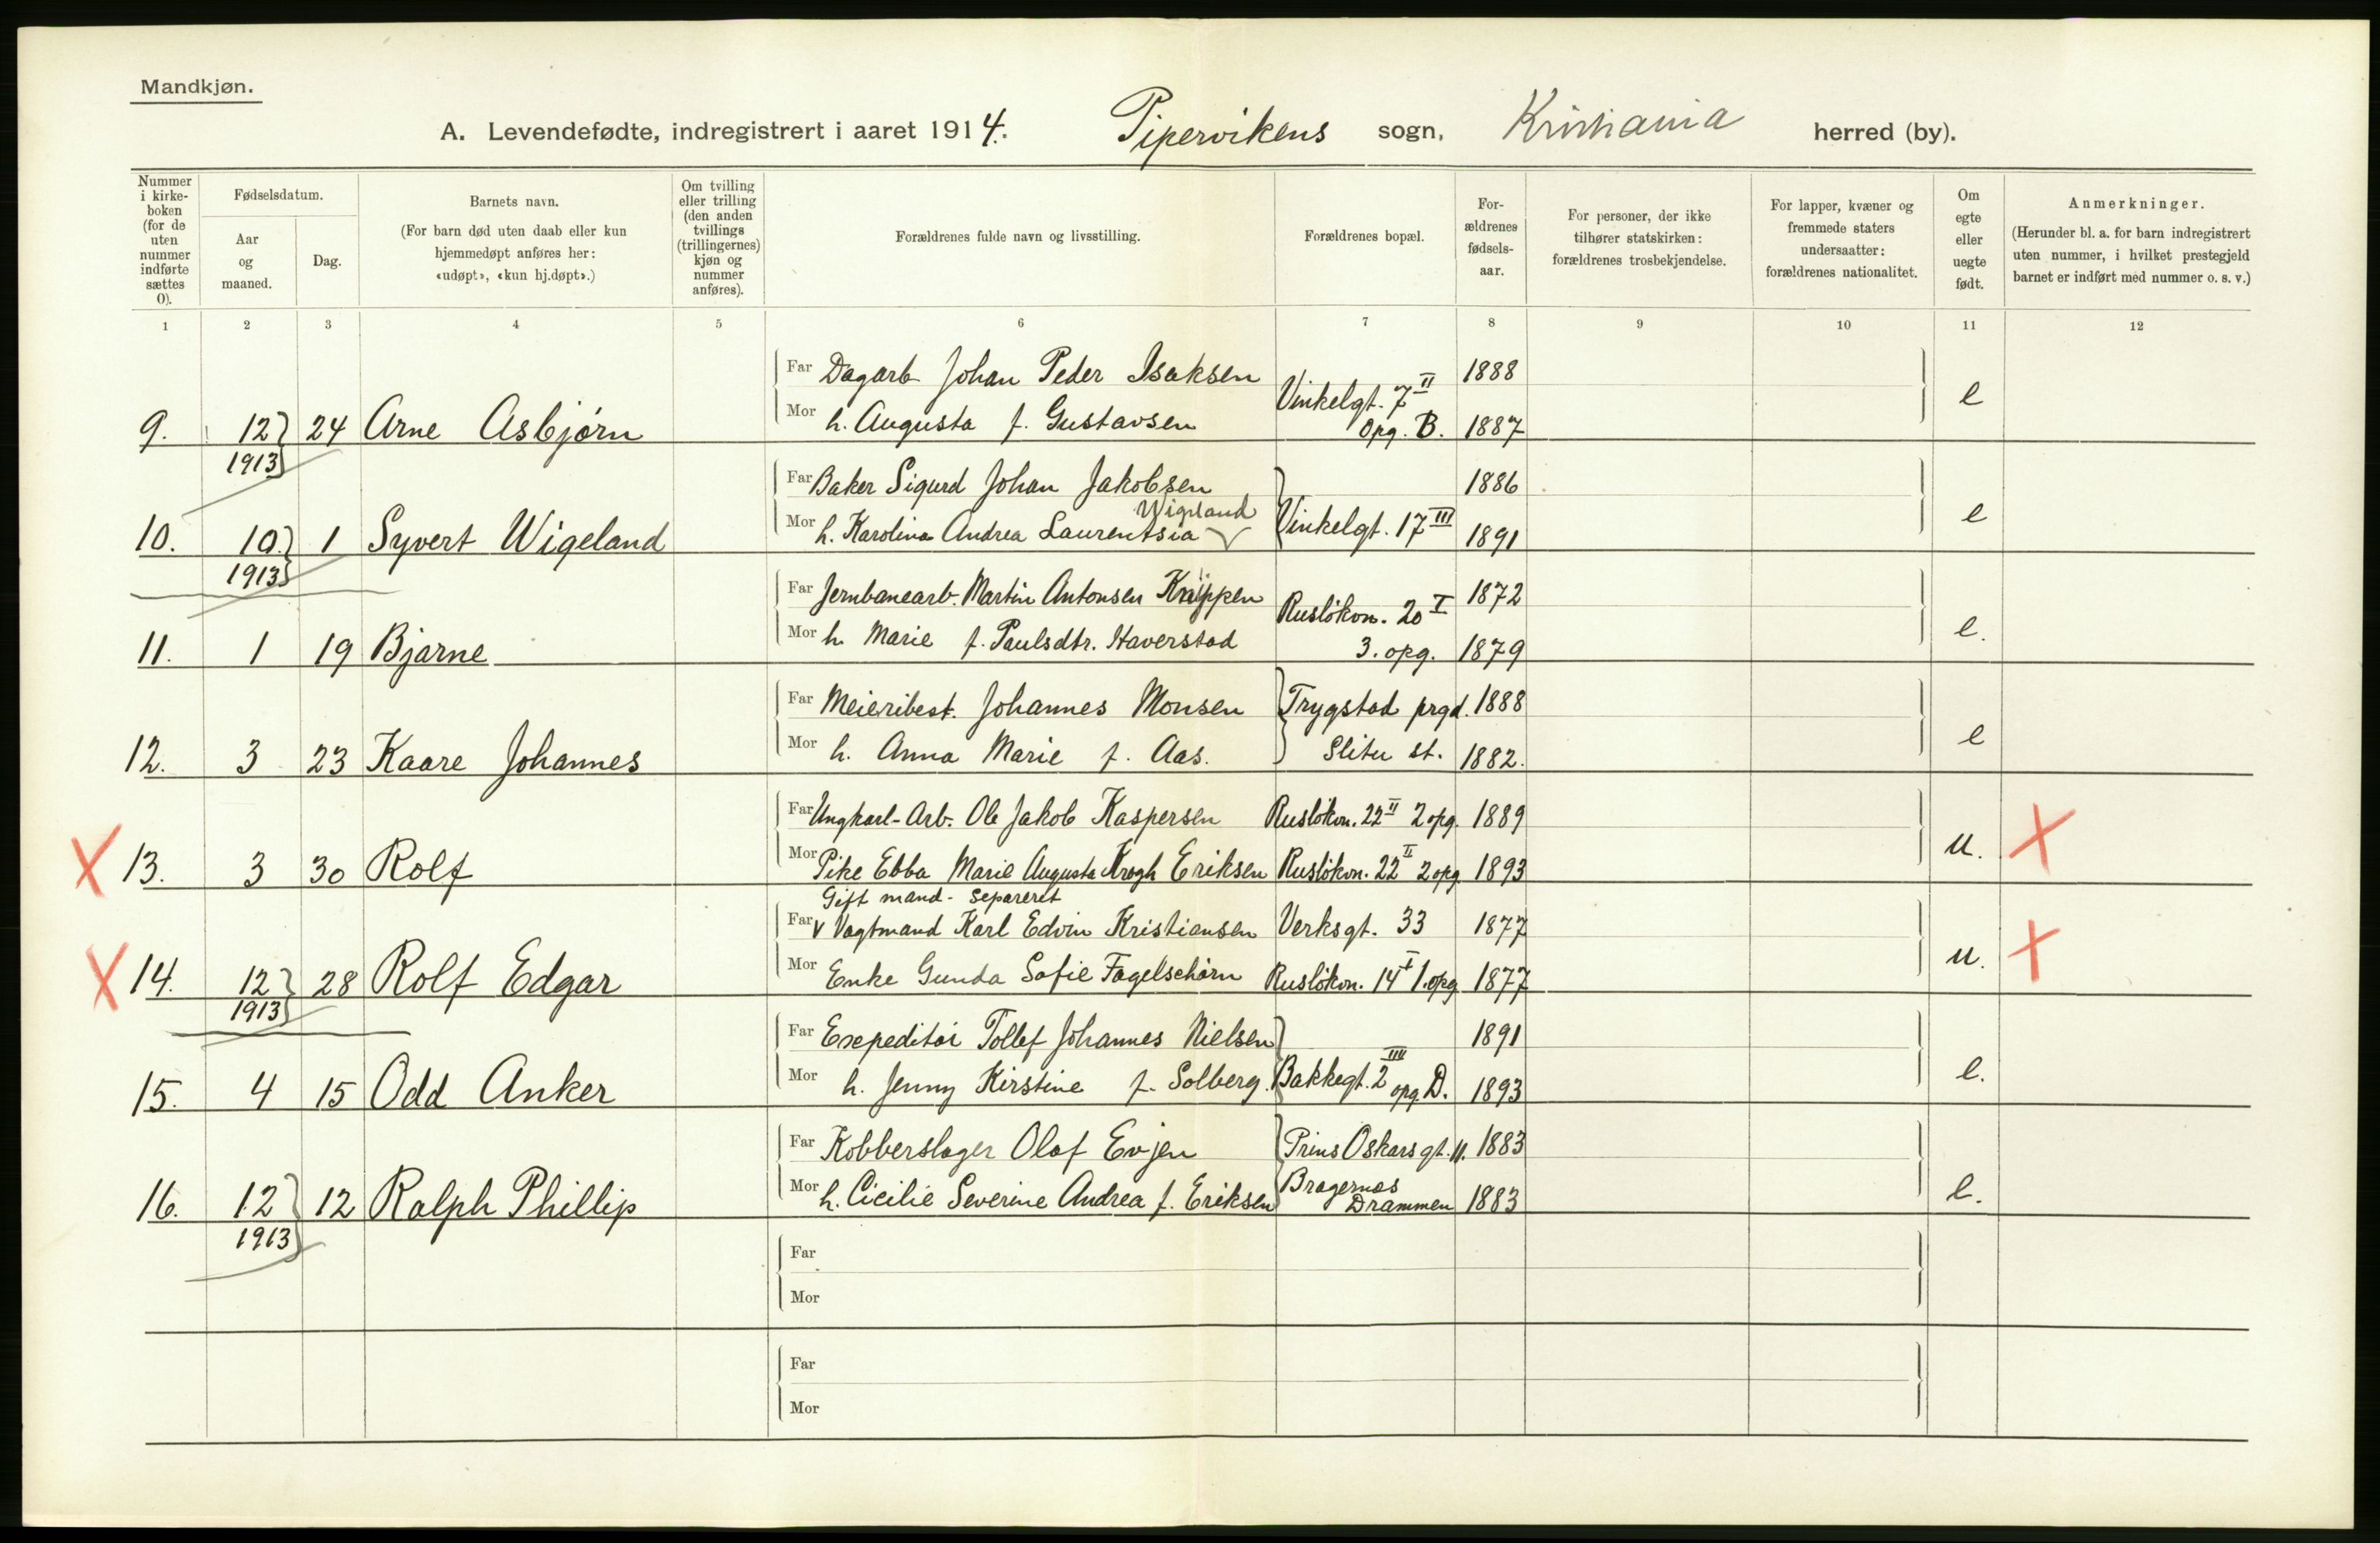 Mandkjøn.
A. Levendefødte, indregistrert i aaret 1914. Pipervikens sogn, Kristiania herred (by).
Nummer i kirke-boken (for de uten nummer indførte sættes 0).
Fødselsdatum.
Aar og maaned.
Dag.
Barnets navn.
(For barn død uten daab eller kun hjemmedøpt anføres her: «udøpt», «kun hj.døpt».)
Om tvilling eller trilling (den anden tvillings (trillingernes) kjøn og nummer anføres).
Forældrenes fulde navn og livsstilling.
Forældrenes bopæl.
For-ældrenes fødsels-aar.
For personer, der ikke tilhører statskirken: forældrenes trosbekjendelse.
For lapper, kvæner og fremmede staters undersaatter: forældrenes nationalitet.
Om egte eller uegte født.
Anmerkninger.
(Herunder bl. a. for barn indregistrert uten nummer, i hvilket prestegjeld barnet er indført med nummer o. s. v.)
1 2 3 4 5 6 7 8 9 10 11 12
Far Dagarb Johan Peder Isaksen Vinkelgt. 7 II 1888
9. 12 24 Arne Asbjørn Mor h. Augusta f. Gustavsen Opg. B. 1887 e
1913
Far Baker Sigurd Johan Jakobsen 1886
Wigeland
10. 10. 1 Syvert Wigeland Mor h. Karolina Andrea Laurentsia Vinkelgt. 17 III 1891 e
1913
Far Jernbanearb. Martin Antonsen Knippen Rusløkvn. 20 I 1872
11. 1 19 Bjarne Mor h. Marie f. Paulsdtr. Haverstad 3. opg. 1879 e.
Far Meieribest. Johannes Monsen Trygstad prgd. 1888
12. 3 23 Kaare Johannes Mor h. Anna Marie f. Aas. Slitu st. 1882. e
Far Ungkarl-Arb. Ole Jakob Kaspersen Rusløkvn. 22 II 2 opg. 1889
X 13. 3 30 Rolf Mor Pike Ebba Marie Augusta Krogh Eriksen Rusløkvn. 22 II 2 opg. 1893 u. X
Gift mand - Separeret
Far v Vagtmand Karl Edvin Kristiansen Verksgt. 33 1877
X 14. 12 28 Rolf Edgar Mor Enke Gunda Sofie Fagelschörn Rusløkvn. 14 I 1. opg 1877 u. X
1913
Far Exepeditör Tollef Johannes Nielsen 1891
15. 4 15 Odd Anker Mor h. Jenny Kirstine f. Solberg. Bakkegt. 2 IIII opg. D. 1893 e.
Far Kobberslager Olaf Evjen Prins Oskarsgt. 11. 1883
16. 12 12 Ralph Phillip Mor h. Cicilie Severine Andrea f. Eriksen Bragernæs Drammen 1883 e.
1913
Far
Mor
Far
Mor